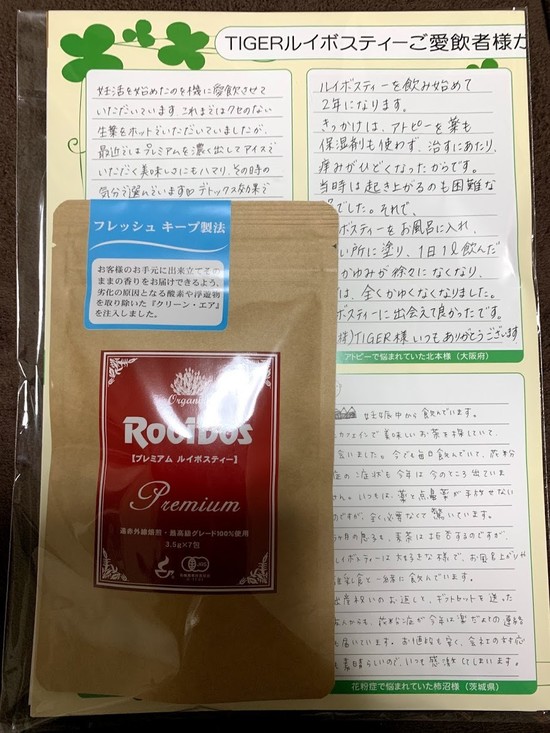 TIGERルイボスティーご愛飲者様か
妊活を始めたのを機に愛飲させて
いただいています。これまではクセのない
生葉をホットでいただいていましたが、
最近ではプレミアムを濃く出してアイスで
いただく美味しさにもハマり、その時の
気分で選んでいます♡デトックス効果で
ルイボスティーを飲み始めて
2年になります。
きっかけは、アトピーを薬も
保湿剤も使わず、治すにあたり、
痒みがひどくなったからです。
当時は起き上がるのも困難な
でした。それで、
ボスティーをお風呂に入れ、
い所に塗り、1日1L飲んだ
がゆみが徐々になくなり、
は、全くかゆくなくなりました。
ボスティーに出会えて良かったです。
様)TIGER様いつもありがとうございます
アトピーで悩まれていた北本様(大阪府)
フレッシュ キープ製法
お客様のお手元に出来立てその
ままの香りをお届けできるよう、
劣化の原因となる酸素や浮遊物
を取り除いた『クリーン・エア』
を注入しました。
Organic
ROOIBOS
【プレミアム ルイボスティー】
Premium
遠赤外線焙煎・最高級グレード100%使用
3.5g×7包
妊娠中から飲んでいます。
カフェインで美味しいお茶を探していて、
会いました。今でも毎日飲んでいて、花粉
症の症状も今年は今のところ出ていま
せん。いつもは、薬と点鼻薬が手放せない
のですが、全く必要なくて驚いています。
ヶ月の息子も、麦茶は拒否するのですが、
ルイボスティーは大好きな様で、お風呂上がりや
離乳食と一緒に飲んでいます。
出産祝いのお返しで、ギフトセットを送った
人からも、花粉症が今年は楽だよとの連絡
も届いています。お通じも良く、会社の対応
も素晴らしいので、いつも感激してしまいます。
花粉症で悩まれていた柿沼様(茨城県)